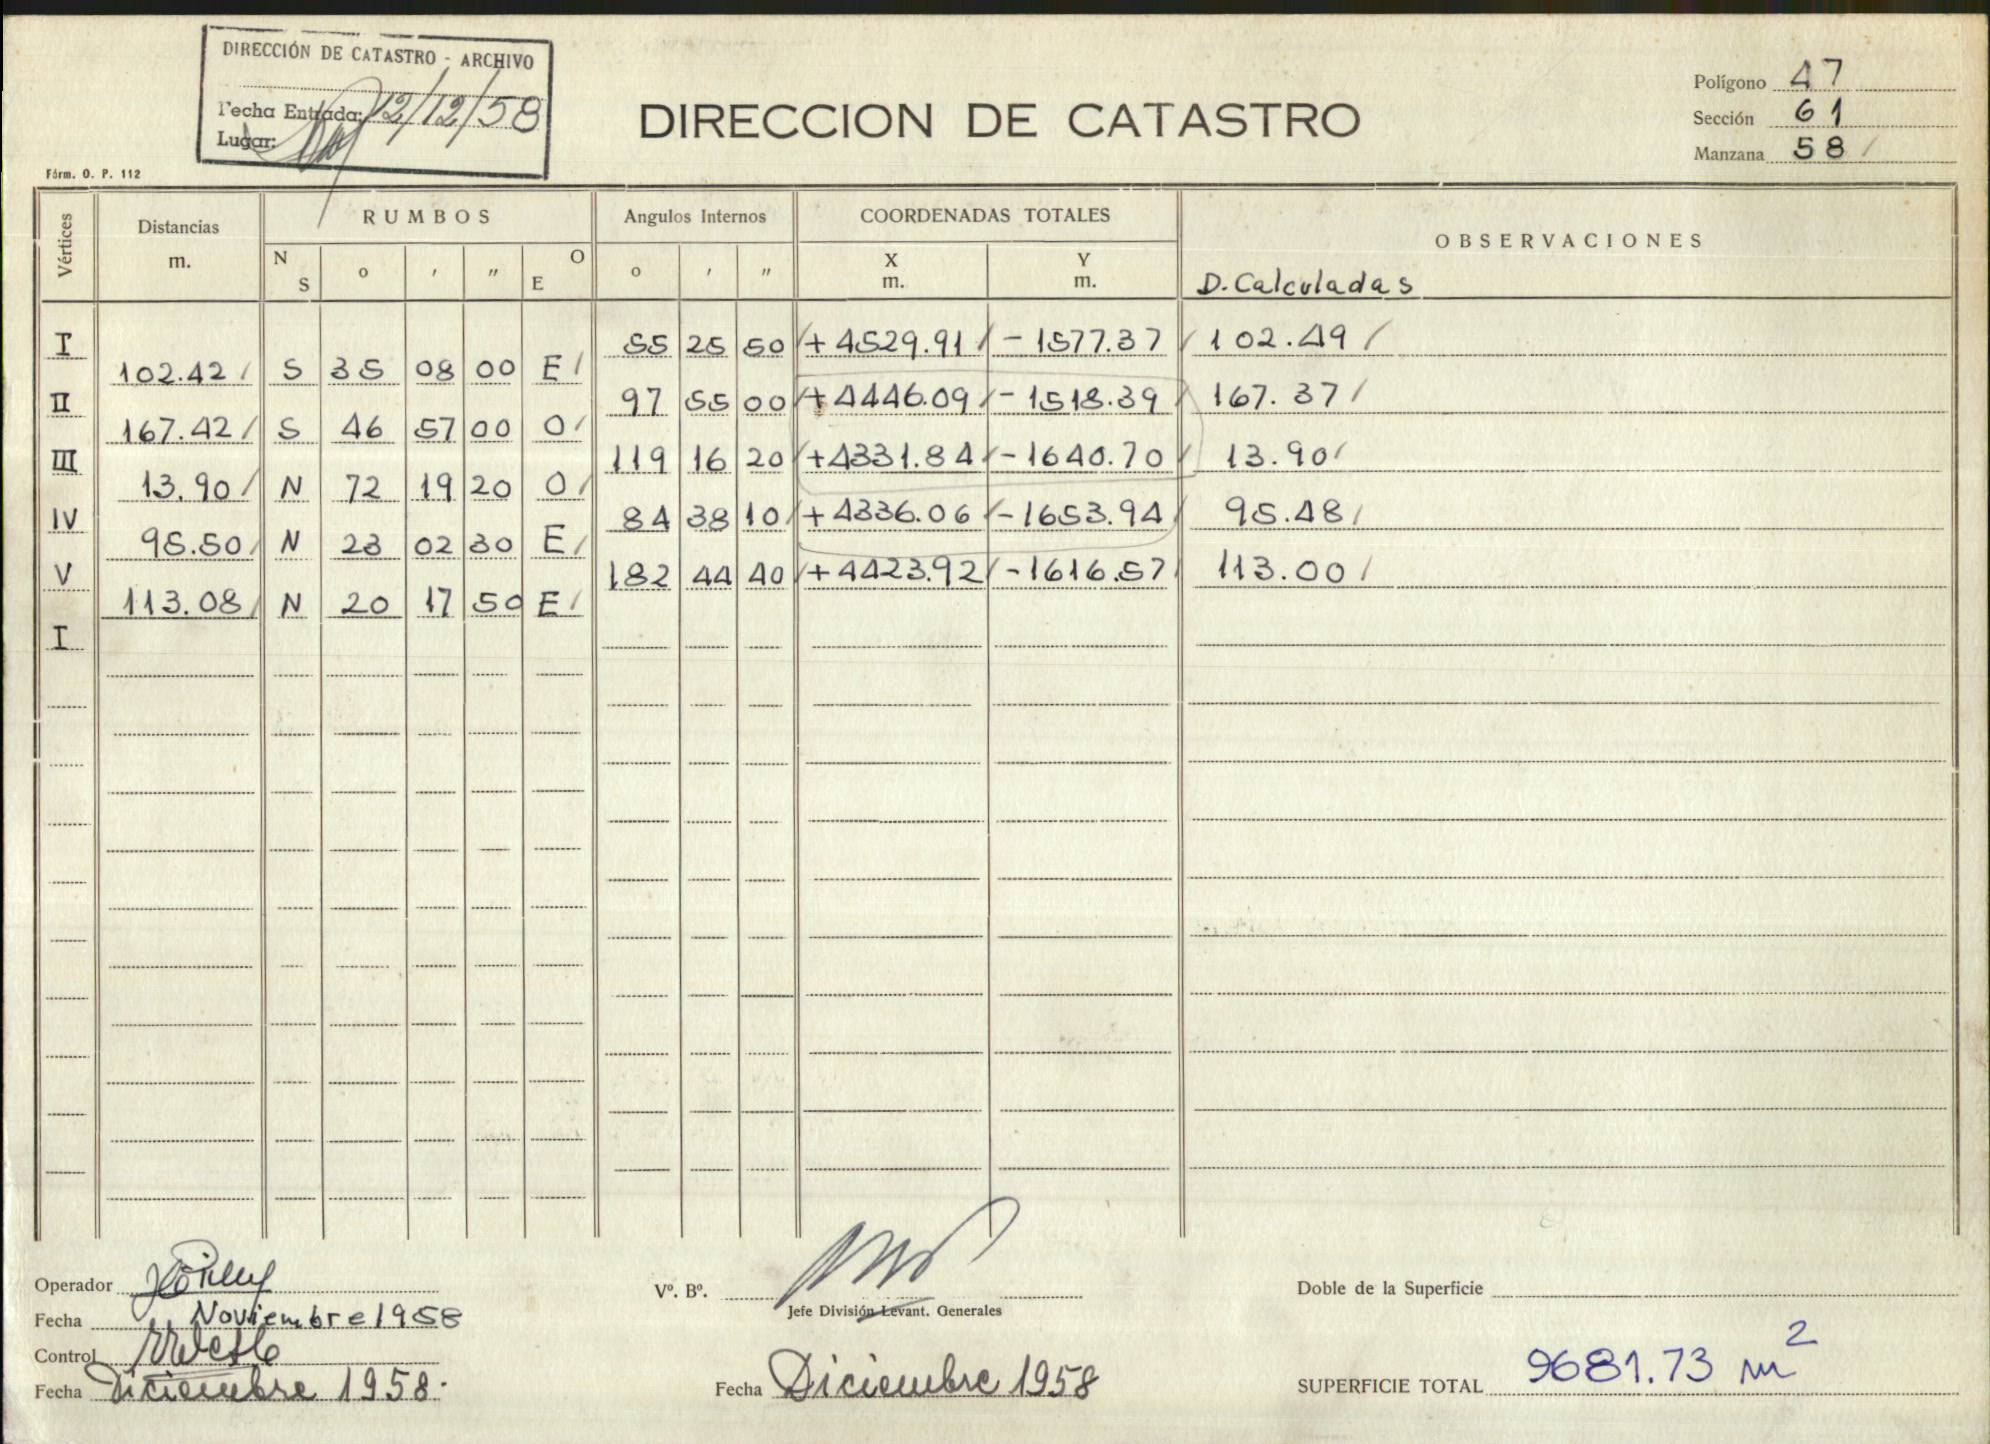 DIRECCIÓN DE CATASTRO - ARCHIVO
Fecha Entrada: 12/12/58
Lugar:
DIRECCION DE CATASTRO
Polígono 47
Sección 61
Manzana 58
Fórm. O. P. 112
Vértices Distancias m. RUMBOS Angulos Internos COORDENADAS TOTALES OBSERVACIONES
N S o ' " O E o ' " X m. Y m. D. Calculadas
I 55 25 50 +4529.91 -1577.37 102.49
102.42 S 35 08 00 E
II 97 55 00 +4446.09 -1518.39 167.37
167.42 S 46 57 00 O
III 119 16 20 +4331.84 -1640.70 13.90
13.90 N 72 19 20 O
IV 84 38 10 +4336.06 -1653.94 95.48
95.50 N 23 02 30 E
V 182 44 40 +4423.92 -1616.57 113.00
113.08 N 20 17 50 E
I
Operador
Fecha Noviembre 1958
Control
Fecha Diciembre 1958.
Vº. Bº.
Jefe División Levant. Generales
Fecha Diciembre 1958
Doble de la Superficie
SUPERFICIE TOTAL 9681.73 m²